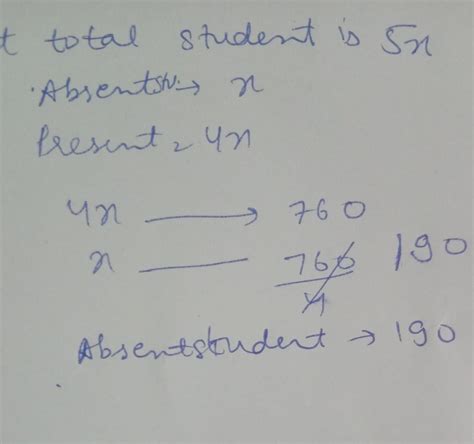 t total student is 5x
Absent st. → x
Present = 4x
4x → 760
x — 760/4 190
Absent student → 190